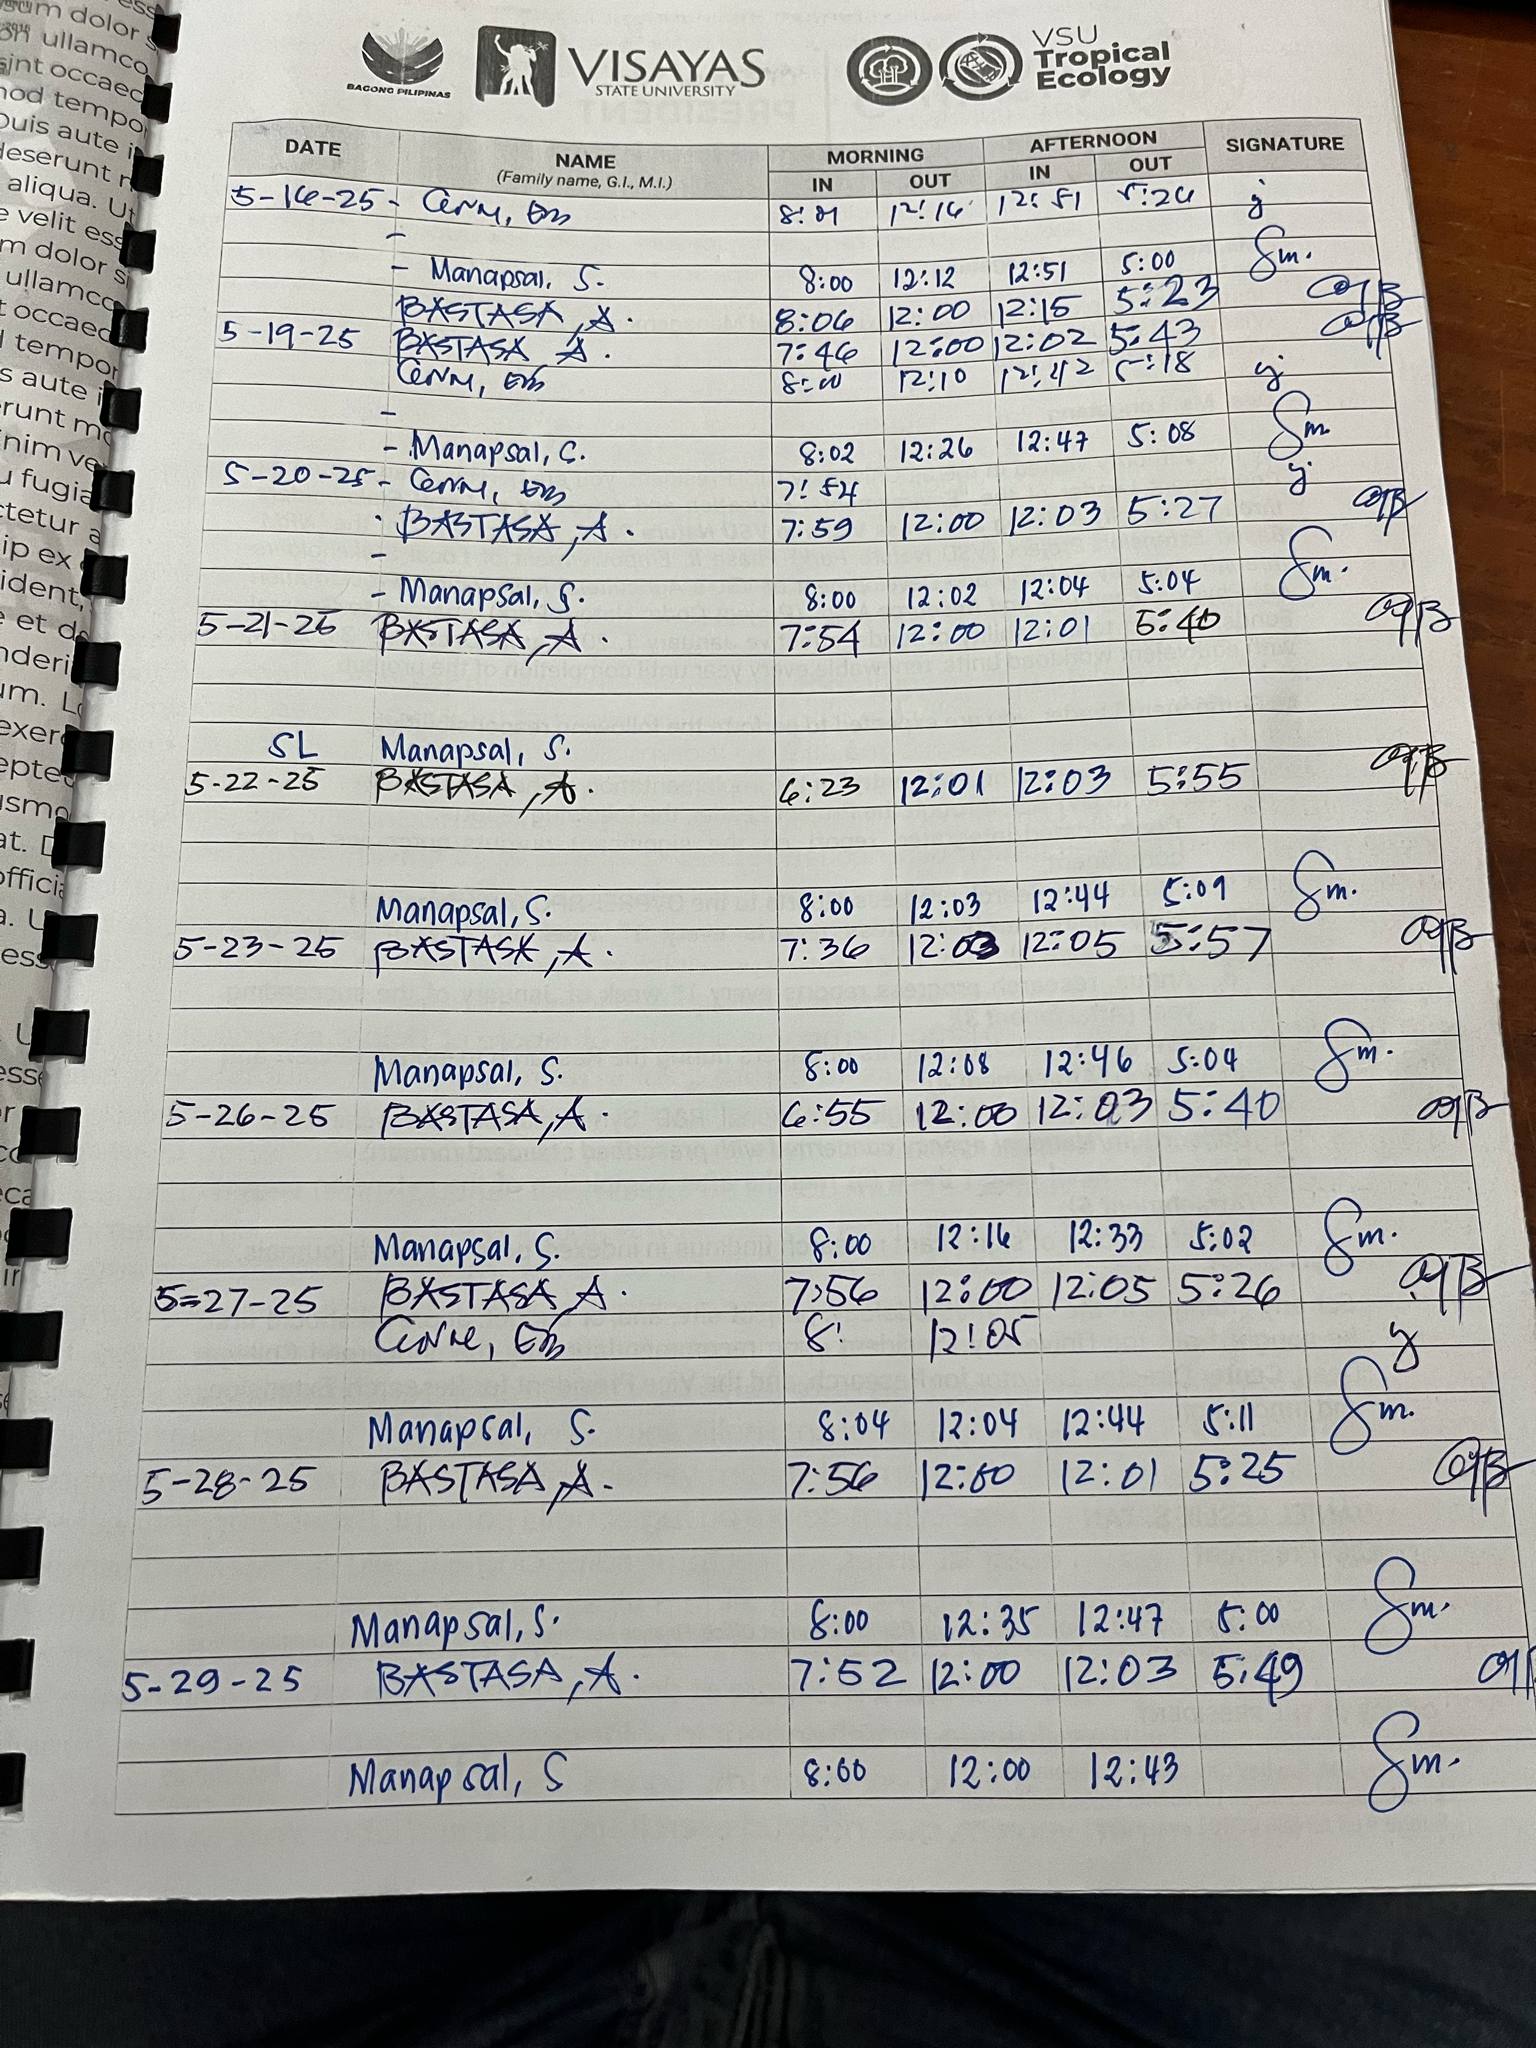 BAGONG PILIPINAS
VISAYAS
STATE UNIVERSITY
VSU
Tropical
Ecology
DATE NAME (Family name, G.I., M.I.) MORNING AFTERNOON SIGNATURE
IN OUT IN OUT
5-16-25 - 8:01 12:16 12:51 5:26
-
- Manapsal, S. 8:00 12:12 12:51 5:00 Sm.
BASTASA, A. 8:06 12:00 12:15 5:23
5-19-25 BASTASA A. 7:46 12:00 12:02 5:43
8:00 12:10 12:42 5:18
-
- Manapsal, S. 8:02 12:26 12:47 5:08 Sm.
5-20-25 - 7:54
BASTASA, A. 7:59 12:00 12:03 5:27
-
- Manapsal, S. 8:00 12:02 12:04 5:04 Sm.
5-21-25 BASTASA, A. 7:54 12:00 12:01 5:40
SL Manapsal, S.
5-22-25 BASTASA, A. 6:23 12:01 12:03 5:55
Manapsal, S. 8:00 12:03 12:44 5:09 Sm.
5-23-25 BASTASA, A. 7:36 12:03 12:05 5:57
Manapsal, S. 8:00 12:08 12:46 5:04 Sm.
5-26-25 BASTASA, A. 6:55 12:00 12:03 5:40
Manapsal, S. 8:00 12:16 12:33 5:02 Sm.
5-27-25 BASTASA, A. 7:56 12:00 12:05 5:26
8: 12:05
Manapsal, S. 8:04 12:04 12:44 5:11 Sm.
5-28-25 BASTASA, A. 7:56 12:00 12:01 5:25
Manapsal, S. 8:00 12:35 12:47 5:00 Sm.
5-29-25 BASTASA, A. 7:52 12:00 12:03 5:49
Manapsal, S 8:00 12:00 12:43 Sm.